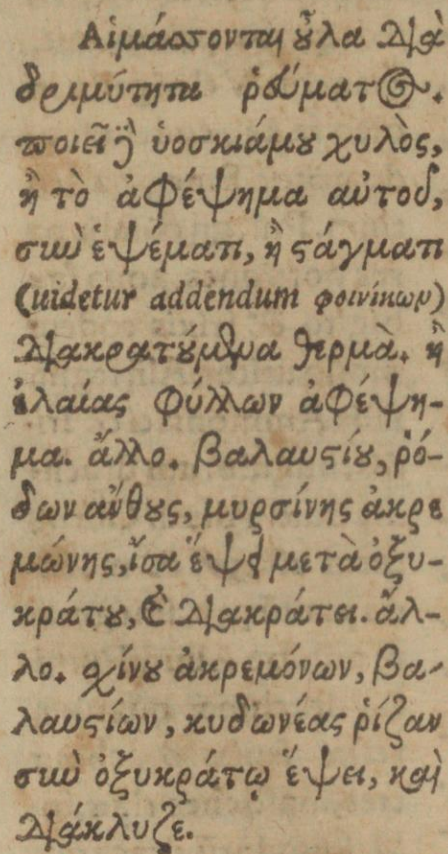 Αἱμάσσονται οὖλα διὰ
δριμύτητα ῥεύματος.
ποιεῖ ἢ ὑοσκιάμου χυλὸς,
ἢ τὸ ἀφέψημα αὐτοῦ,
σὺν ἑψέματι, ἢ στάγματι
(uidetur addendum φοινίκων)
διακρατούμενα θερμὰ. ἢ
ἐλαίας φύλλων ἀφέψη-
μα. ἄλλο. βαλαυστίου, ῥό-
δων ἄνθους, μυρσίνης ἀκρε
μώνης, ἴσα ἕψει μετὰ ὀξυ-
κράτου, καὶ διακράτει. ἄλ-
λο. σχίνου ἀκρεμόνων, βα-
λαυστίων, κυδωνέας ῥίζαν
σὺν ὀξυκράτῳ ἕψει, καὶ
διάκλυζε.